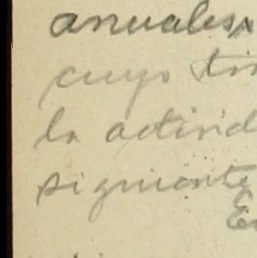 anuales
cuyo
la activid
siguiente
En